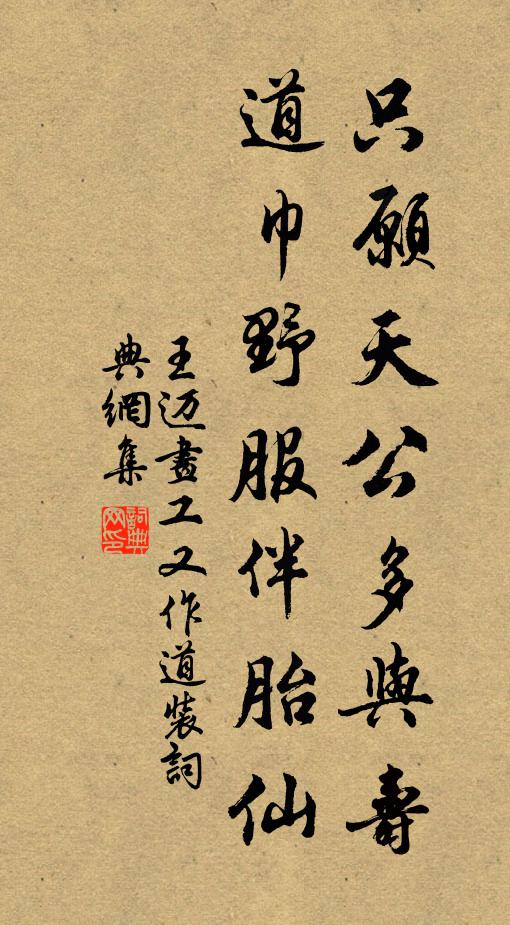 只願天公多與壽
道巾野服伴胎仙
王迈畫工又作道裝詞
典網集
詞典
网印